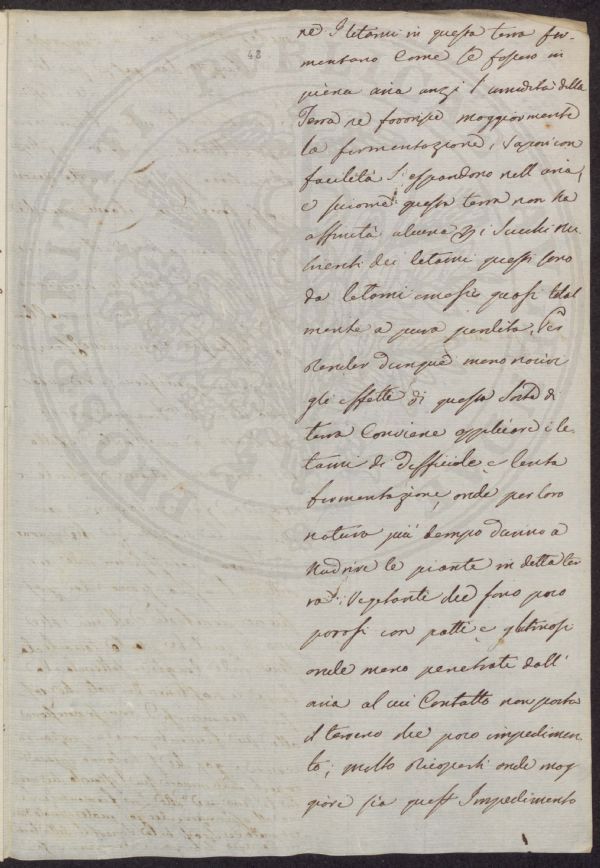 48
ne I letami in questa terra fer-
mentano Come se fossero in
piena aria anzi l'umidità della
Terra ne favorisce maggiormente
la fermentazione, i vapori con
facilità s'espandono nell'aria,
e siccome questa terra non ha
affinità alcuna i Succhi nu
trienti dei letami questi sono
da letami emessi quasi total
mente a pura perdita, Per
render dunque meno nocivi
gli effetti di questa Sorta di
terra Conviene applicare i le
tami di difficile e lenta
fermentazione, onde per loro
natura più tempo durino a
Nudrire le piante in detta ter
ra: Vegetanti che sono poco
porosi con patti e glutinosi
onde meno penetrate dall'
aria al cui Contatto non porta
il terreno che poco impedimen
to; molto Ricoperti onde mag
giore sia quest'Impedimento